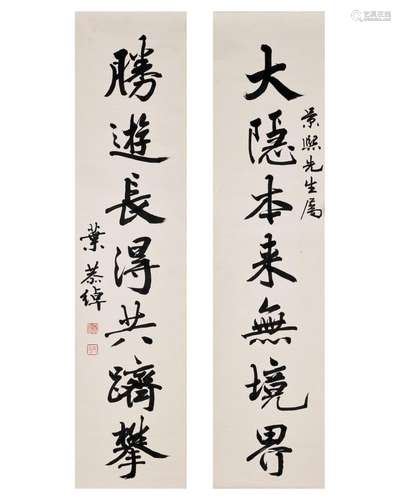 大隱本来無境界
景熙先生屬
勝遊長得共躋攀
葉恭綽